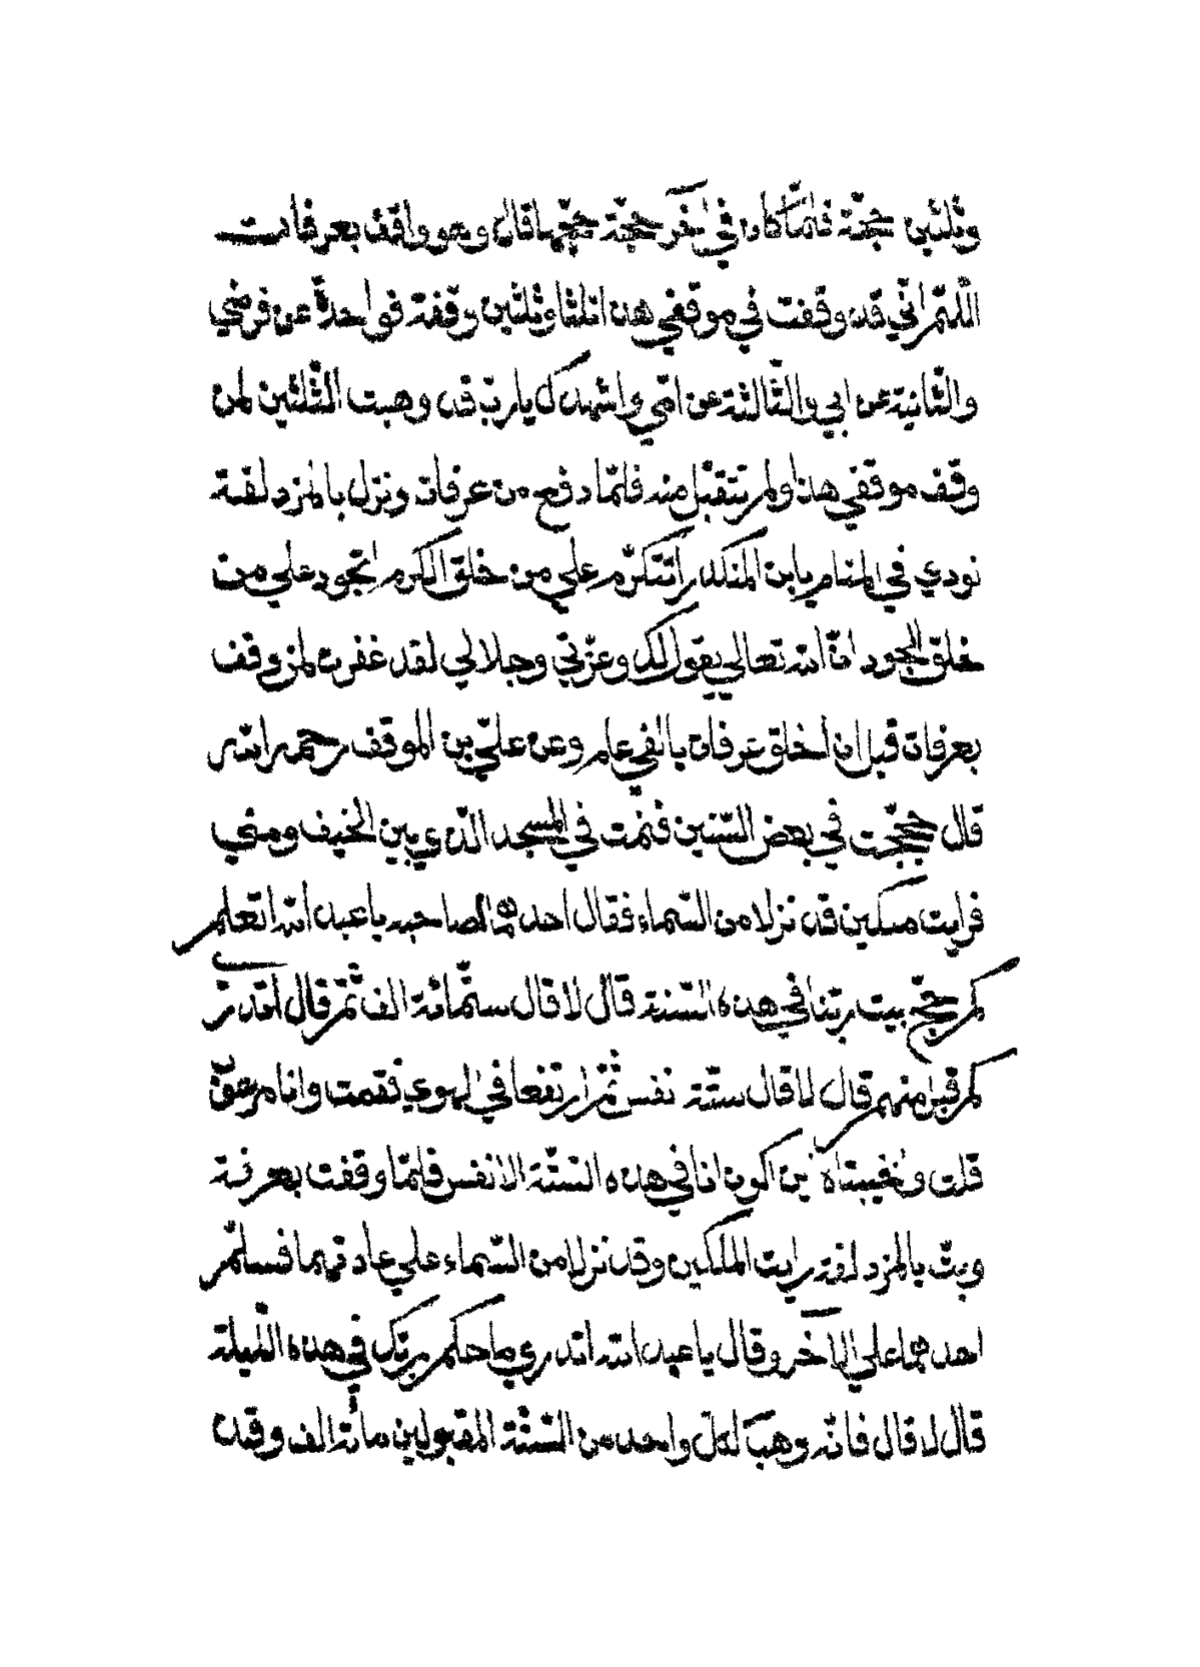 وثلثين حجّة فلمّا كان في آخر حجّة حجّها قال وهو واقف بعرفات
اللّهمّ انّي قد وقفت في موقفي هذا ثلثا وثلثين وقفة فواحدة عن فرضي
والثّانية عن ابي والثّالثة عن امّي واشهدك يا ربّ قد وهبت الثّلثين لمن
وقف موقفي هذا ولم تتقبّل منه فلمّا دفع من عرفات ونزل بالمزدلفة
نودي في المنام يا بن المنكدر اتتكرّم علي من خلق الكرم اتجود علي من
خلق الجود انّ الله تعالي يقول لك وعزّتي وجلالي لقد غفرت لمن وقف
بعرفات قبل ان اخلق عرفات بالفي عام وعن عليّ بن الموقف رحمه الله
قال حججّت في بعض السّنين فنمت في المسجد الّذي بين الخيف ومني
فرايت ملكين قد نزلا من السّماء فقال احدهما لصاحبه يا عبد الله اتعلم
كم حجّ بيت ربّنا في هذه السّنة قال لا قال ستّمائة الف ثمّ قال اتدري
كم قبل منهم قال لا قال ستّة نفس ثمّ ارتفعا في الهوي فقمت وانا مرعوق
قلت واخيبتاه اين اكون انا في هذه السّتّة الانفس فلمّا وقفت بعرفة
وبتّ بالمزدلفة رايت الملكين وقد نزلا من السّماء علي عادتهما فسلّم
احدهما علي الآخر وقال يا عبد الله اتدري ما حكم ربّك في هذه اللّيلة
قال لا قال فانّه وهب لكلّ واحد من السّتّة المقبولين مائة الف وقد